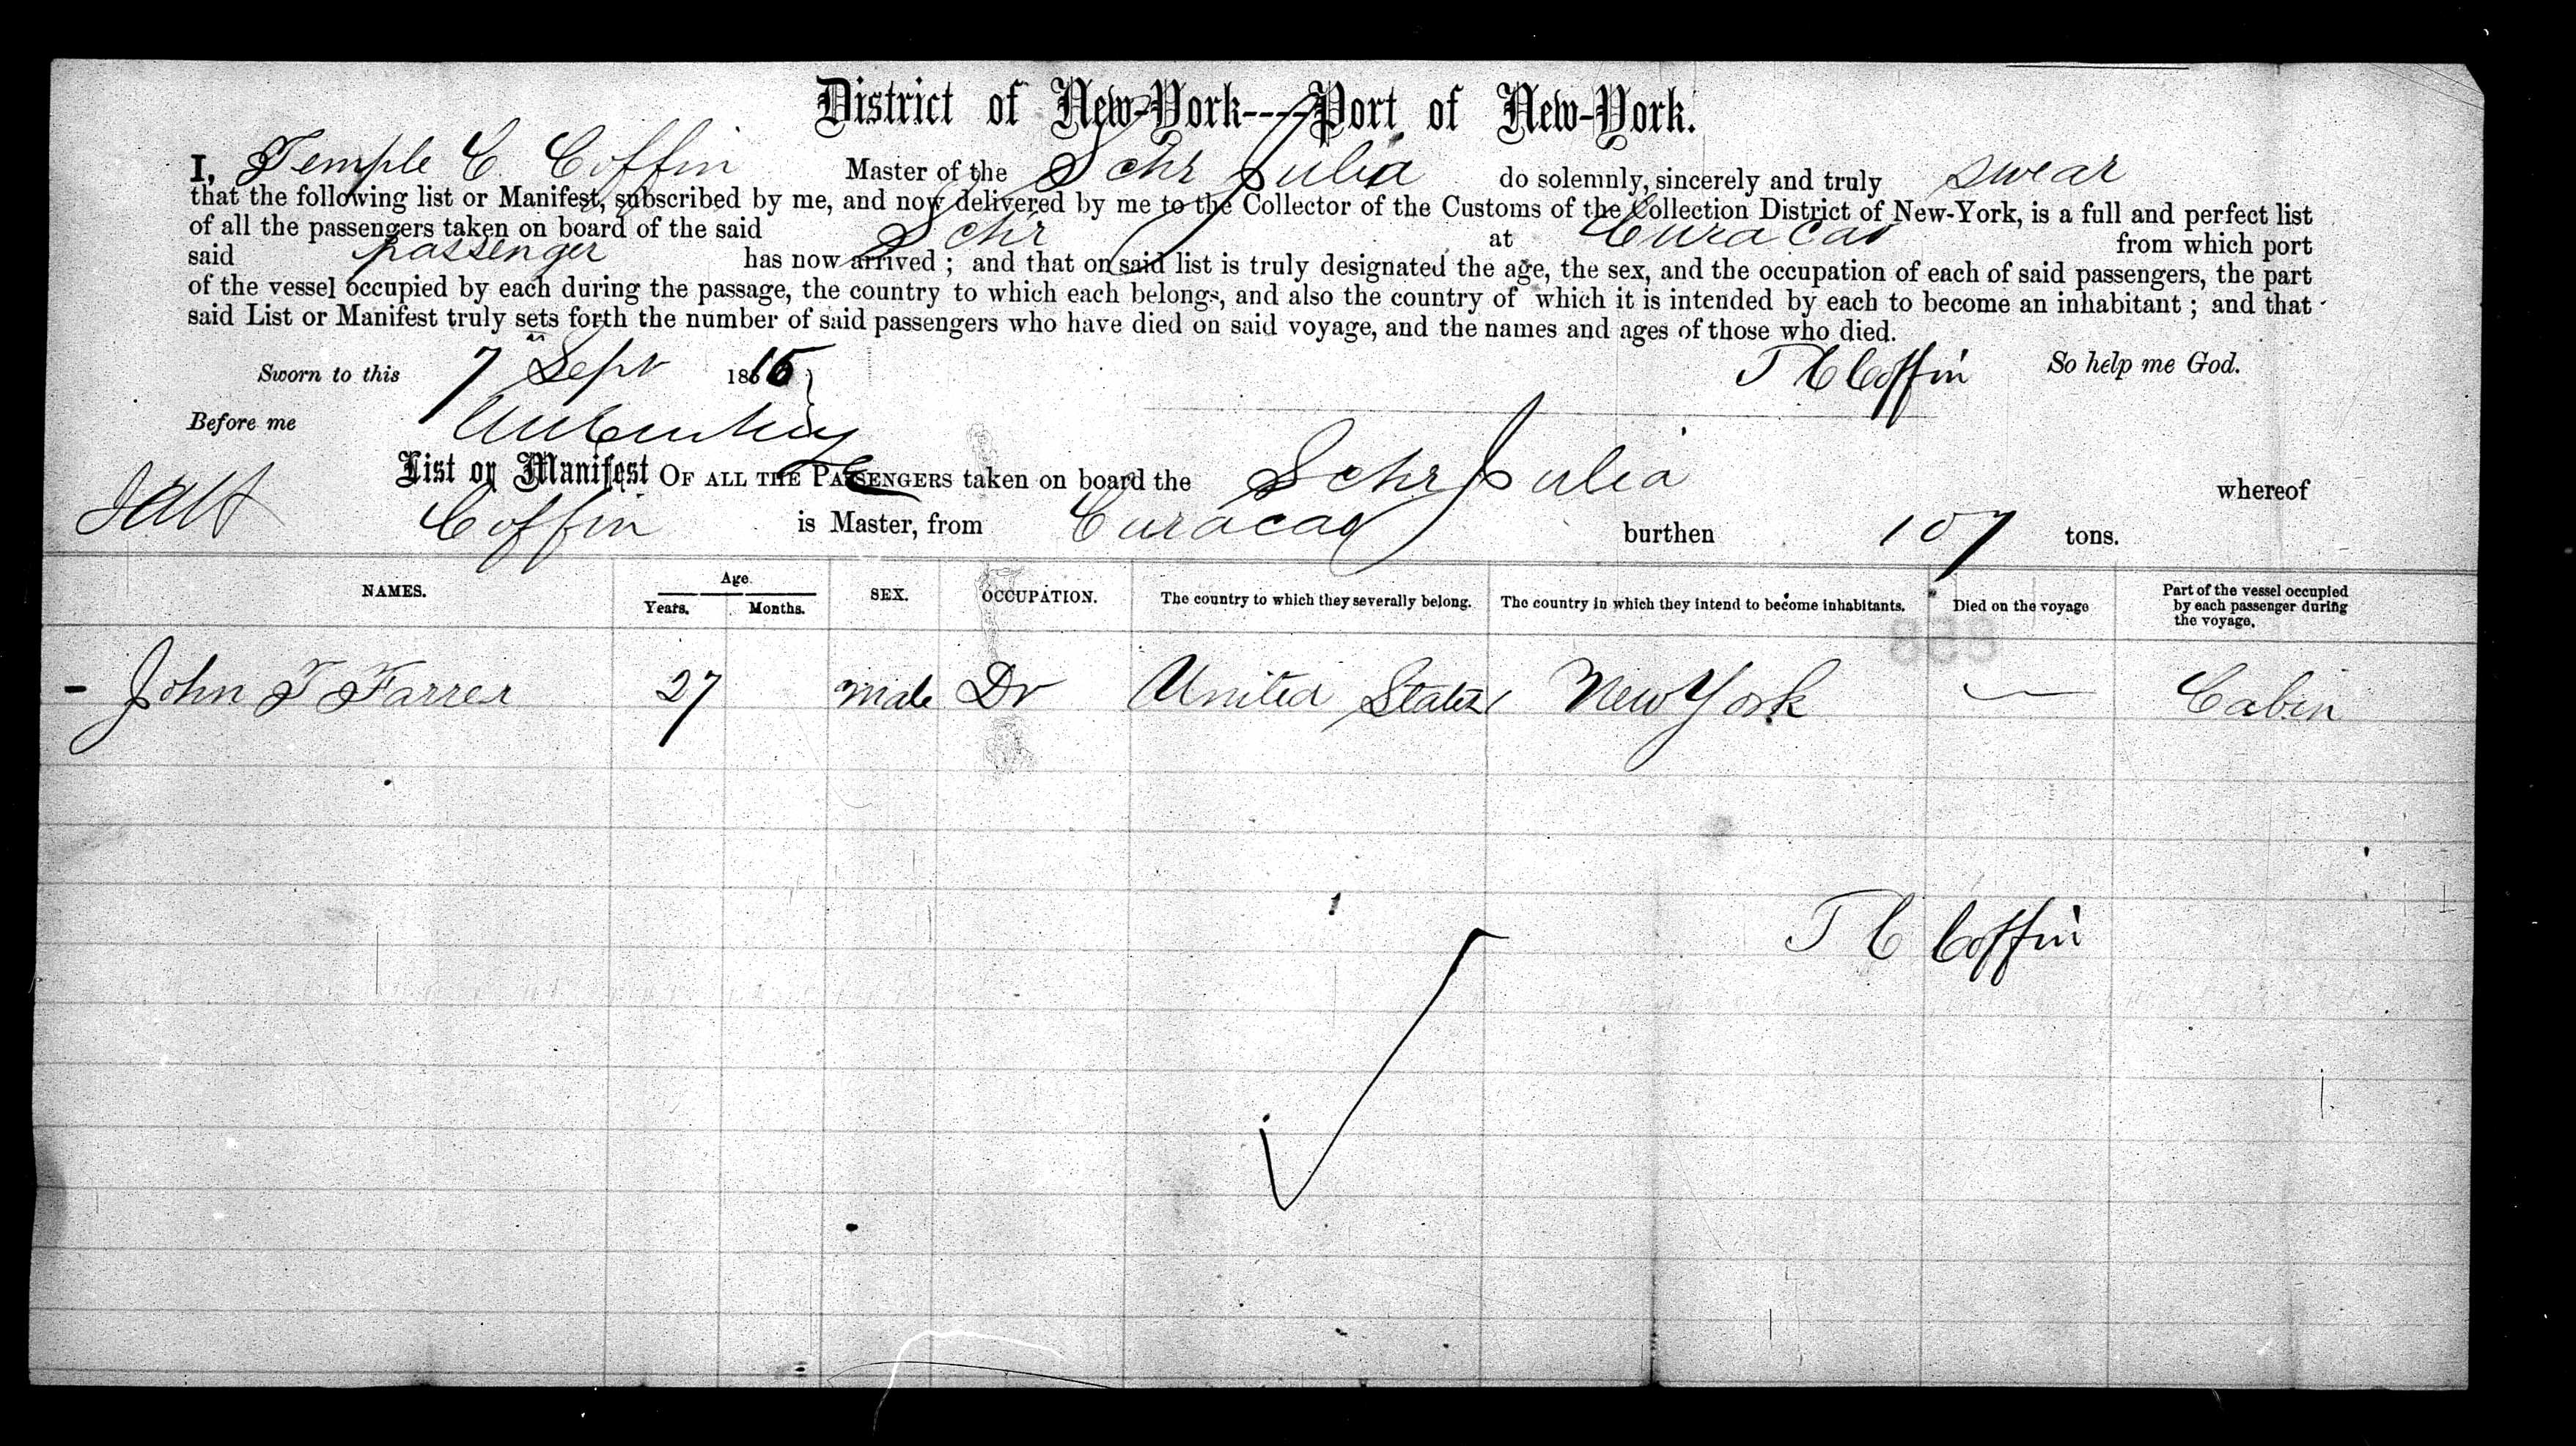 District of New-York----Port of New-York.
I, Temple C. Coffin Master of the Schr Julia do solemnly, sincerely and truly swear
that the following list or Manifest, subscribed by me, and now delivered by me to the Collector of the Customs of the Collection District of New-York, is a full and perfect list
of all the passengers taken on board of the said Schr at Curacao from which port
said passenger has now arrived ; and that on said list is truly designated the age, the sex, and the occupation of each of said passengers, the part
of the vessel occupied by each during the passage, the country to which each belongs, and also the country of which it is intended by each to become an inhabitant ; and that
said List or Manifest truly sets forth the number of said passengers who have died on said voyage, and the names and ages of those who died.
Sworn to this 7 Sept T C Coffin So help me God.
Before me
List or Manifest OF ALL THE PASSENGERS taken on board the Schr Julia whereof
Coffin is Master, from Curacao burthen 107 tons.
NAMES. Age. Years. Months. SEX. OCCUPATION. The country to which they severally belong. The country in which they intend to become inhabitants. Died on the voyage Part of the vessel occupied by each passenger during the voyage.
John T Farrer 27 male Dr United States New York — Cabin
T C Coffin